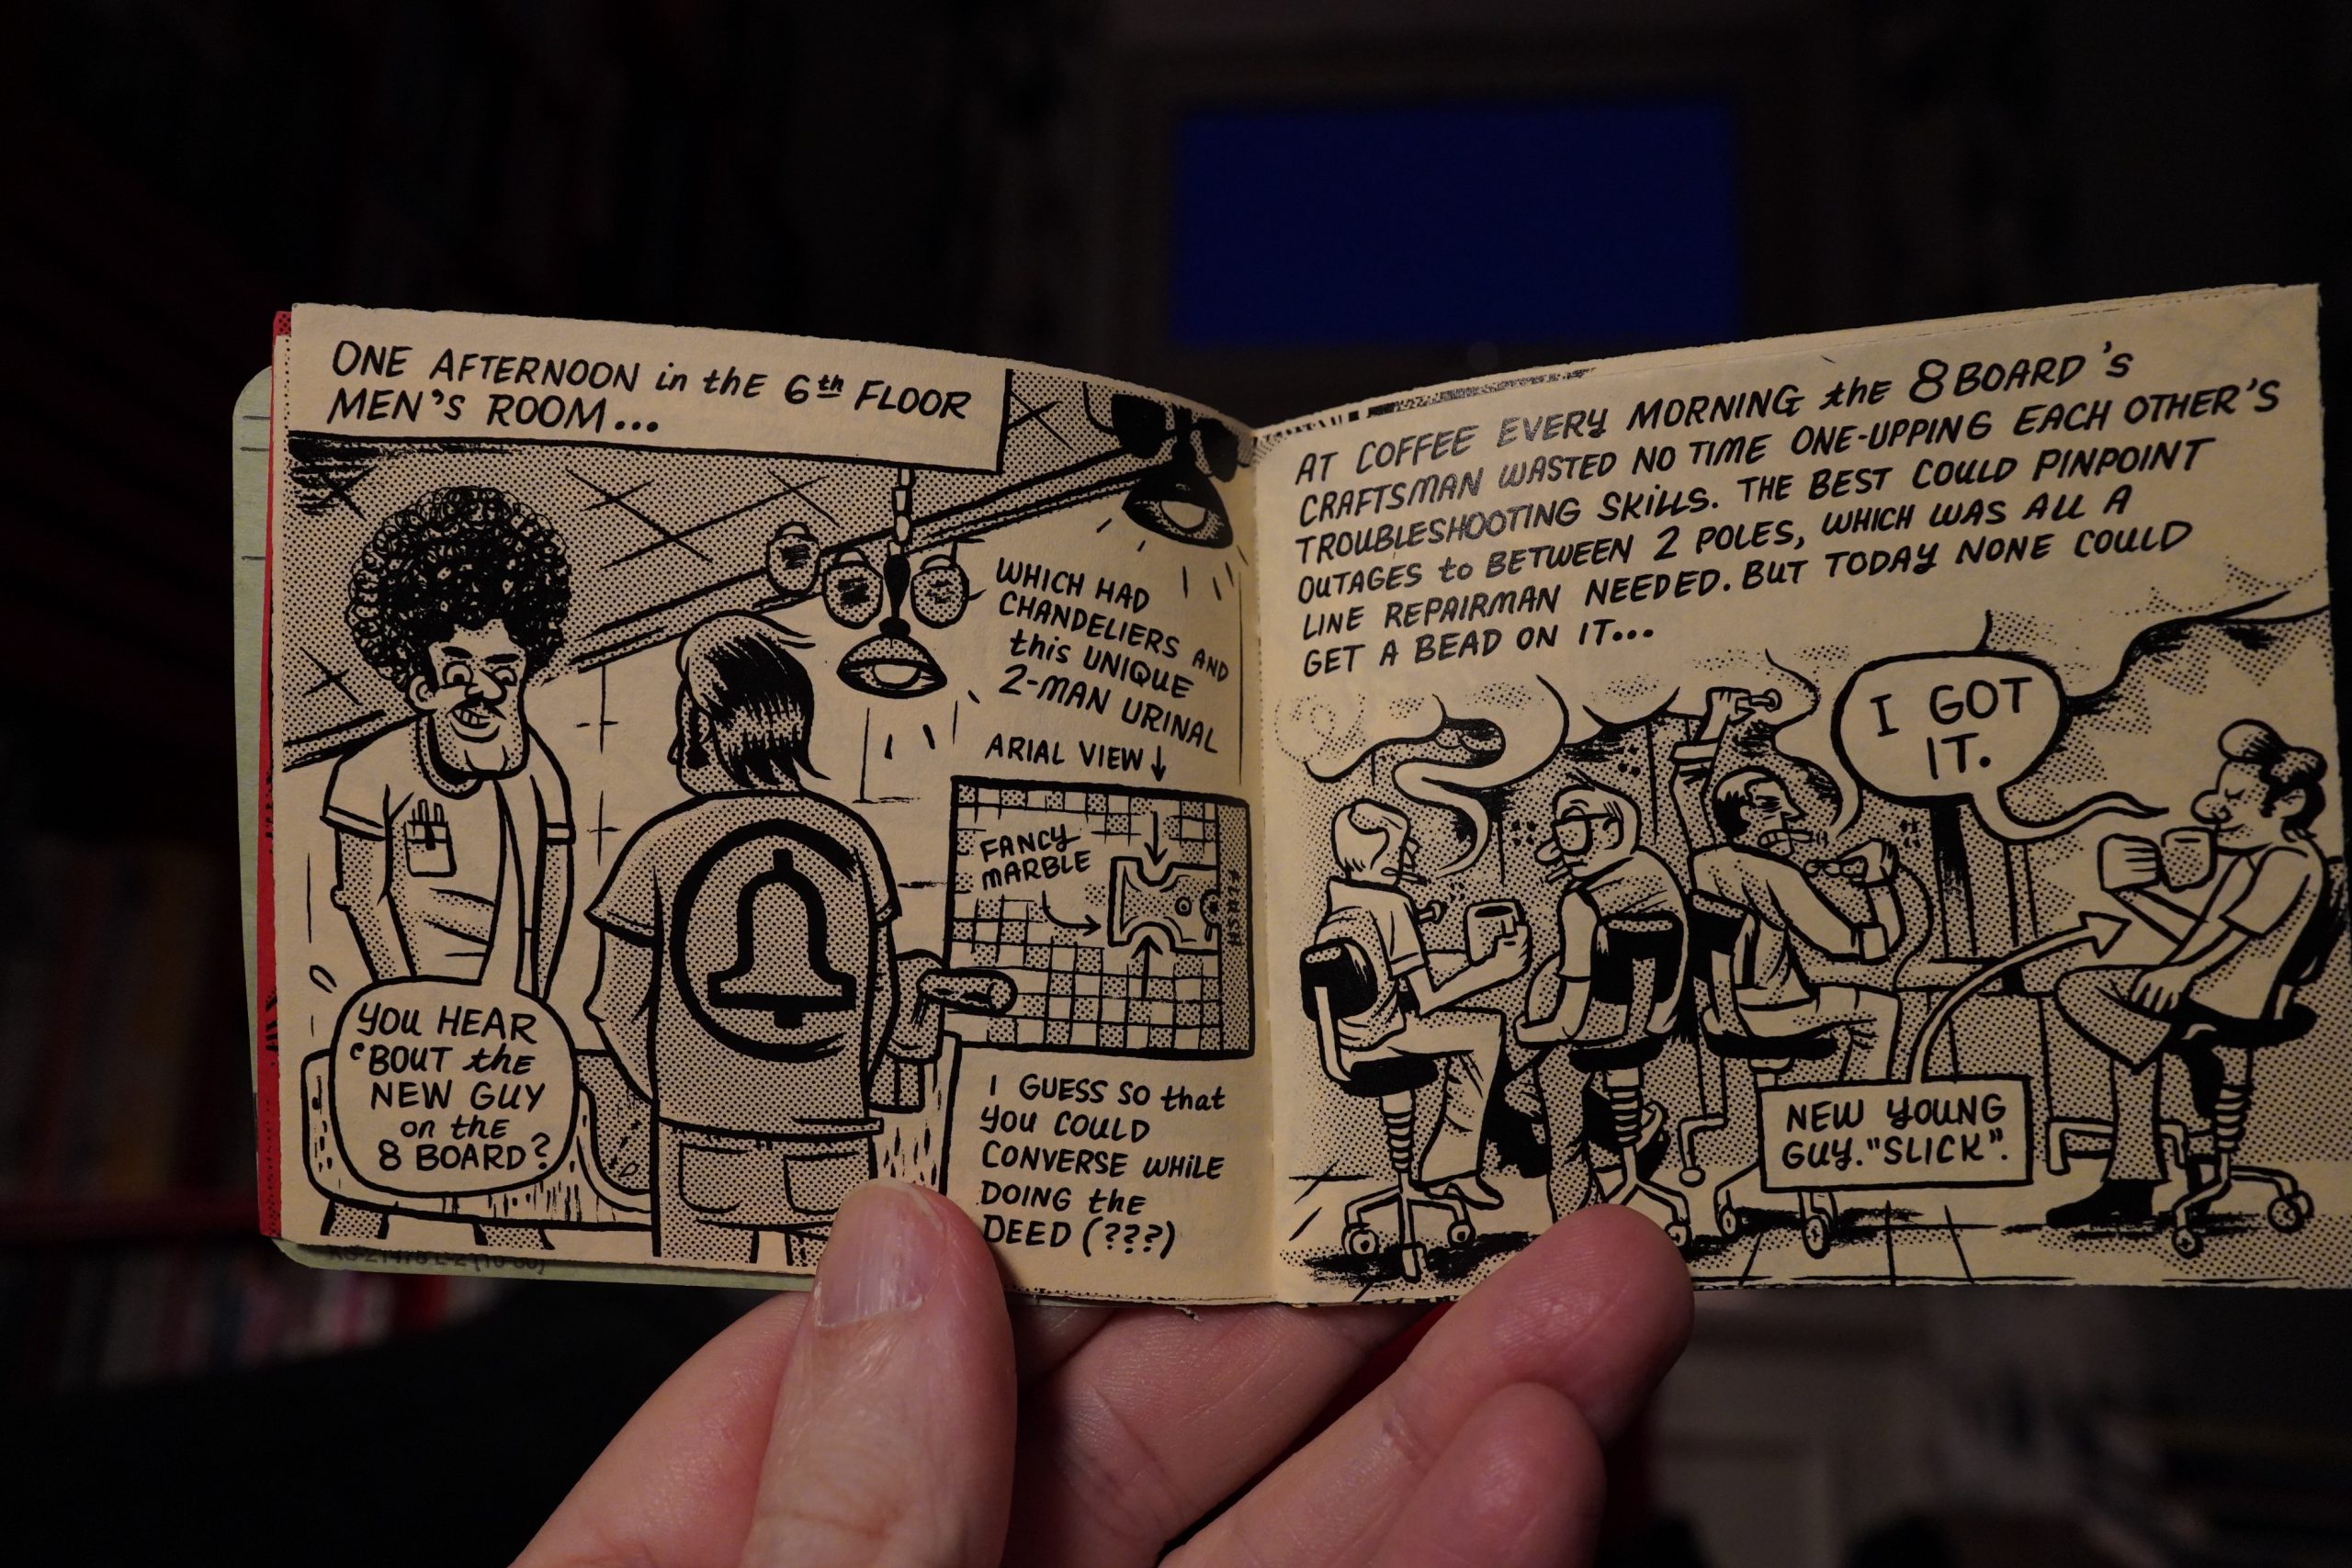 ONE AFTERNOON in thE 6th FLOOR
MEN'S ROOM...
WHICH HAD
CHANDELIERS AND
this UNIQUE
2-MAN URINAL
ARIAL VIEW ↓
FANCY
MARBLE
FLUSH
YOU HEAR
'BOUT thE
NEW GUY
on thE
8 BOARD?
I GUESS SO that
YOU COULD
CONVERSE WHILE
DOING thE
DEED (???)
AT COFFEE EVERY MORNING thE 8 BOARD'S
CRAFTSMAN WASTED NO TIME ONE-UPPING EACH OTHER'S
TROUBLESHOOTING SKILLS. THE BEST COULD PINPOINT
OUTAGES to BETWEEN 2 POLES, WHICH WAS ALL A
LINE REPAIRMAN NEEDED. BUT TODAY NONE COULD
GET A BEAD ON IT...
I GOT
IT.
NEW YOUNG
GUY. "SLICK".